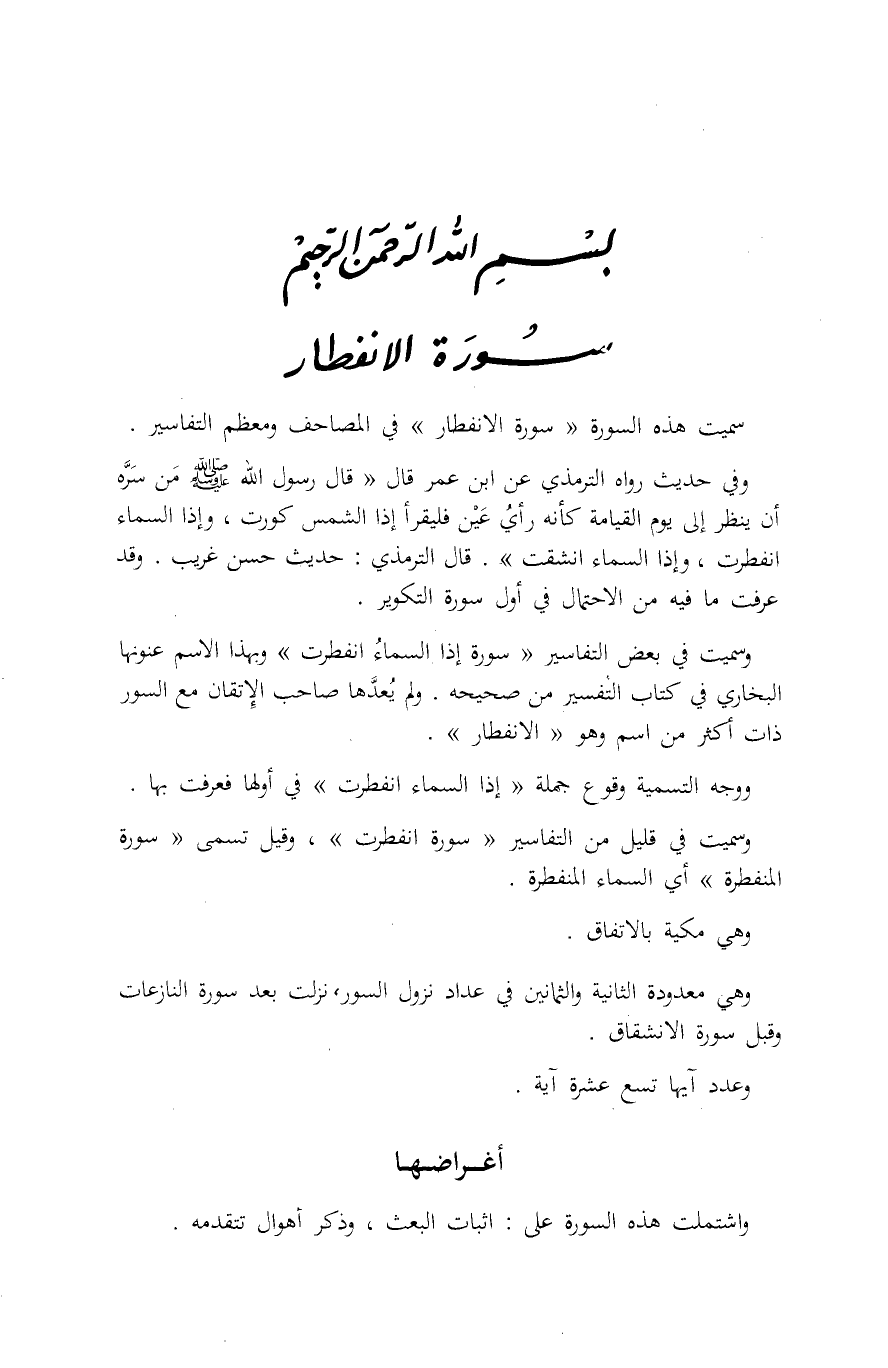 بِسْمِ اللهِ الرَّحْمَنِ الرَّحِيمْ
سُورَة الانفطار
سميت هذه السورة « سورة الانفطار » في المصاحف ومعظم التفاسير .
وفي حديث رواه الترمذي عن ابن عمر قال « قال رسول الله ﷺ مَن سَرَّه
أن ينظر إلى يوم القيامة كأنه رأيُ عَيْن فليقرأ إذا الشمس كورت ، وإذا السماء
انفطرت ، وإذا السماء انشقت » . قال الترمذي : حديث حسن غريب . وقد
عرفت ما فيه من الاحتمال في أول سورة التكوير .
وسميت في بعض التفاسير « سورة إذا السماءُ انفطرت » وبهذا الاسم عنونها
البخاري في كتاب التفسير من صحيحه . ولم يُعدَّها صاحب الإتقان مع السور
ذات أكثر من اسم وهو « الانفطار » .
ووجه التسمية وقوع جملة « إذا السماء انفطرت » في أولها فعرفت بها .
وسميت في قليل من التفاسير « سورة انفطرت » ، وقيل تسمى « سورة
المنفطرة » أي السماء المنفطرة .
وهي مكية بالاتفاق .
وهي معدودة الثانية والثمانين في عداد نزول السور، نزلت بعد سورة النازعات
وقبل سورة الانشقاق .
وعدد آيها تسع عشرة آية .
أغـراضـهـا
واشتملت هذه السورة على : اثبات البعث ، وذكر أهوال تتقدمه .